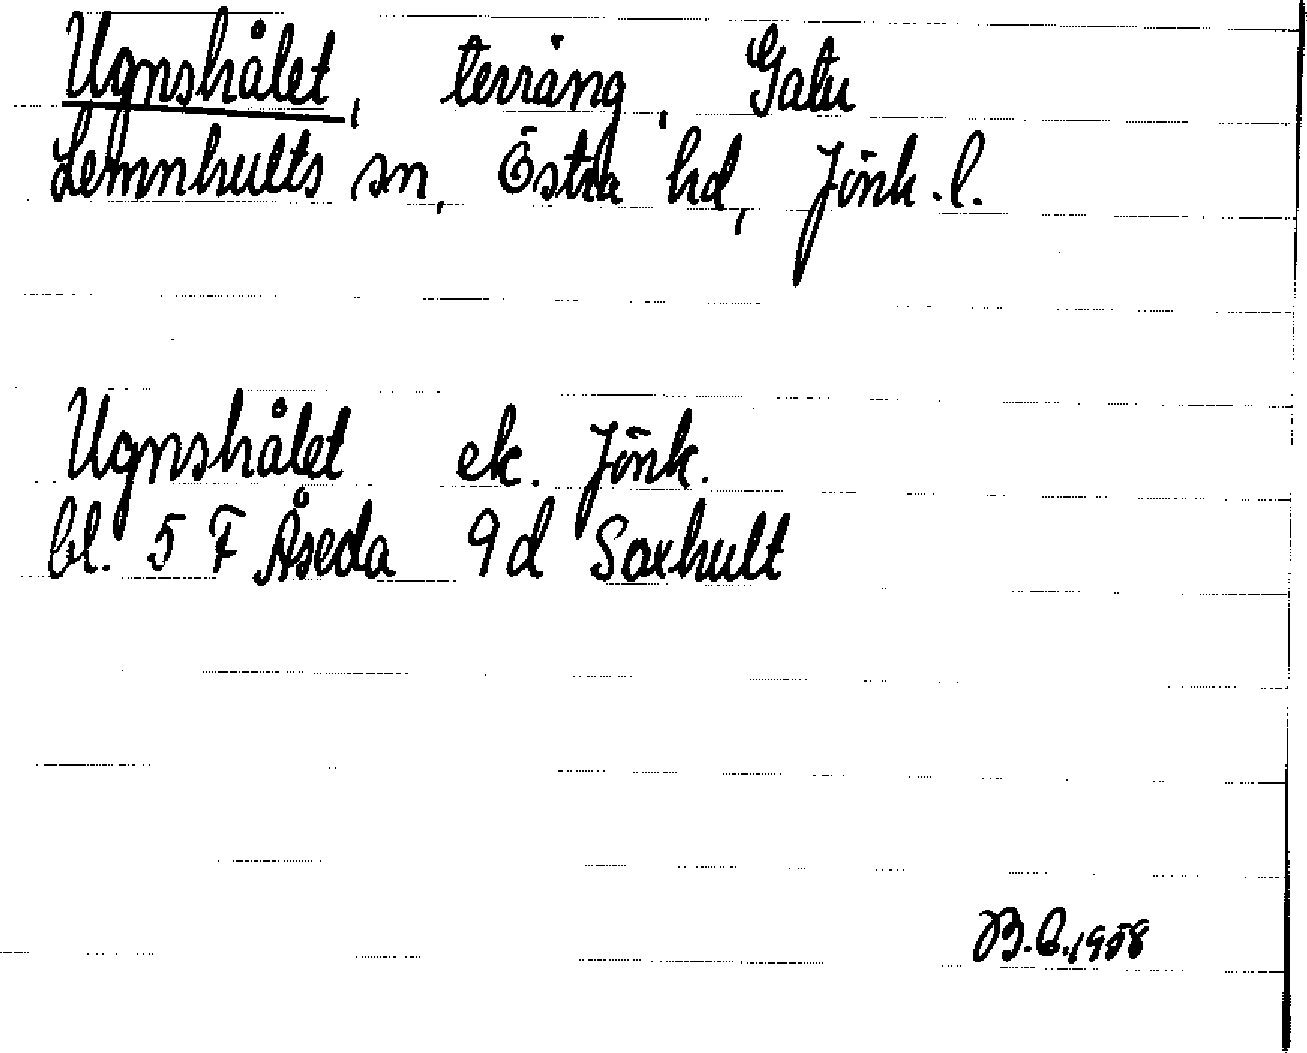 Ugnshålet, terräng, Gatu
Lemnhults sn, Östra hd, Jönk. l.
Ugnshålet ek. Jönk.
bl. 5 F Åseda 9d Saxhult
B.E.1958